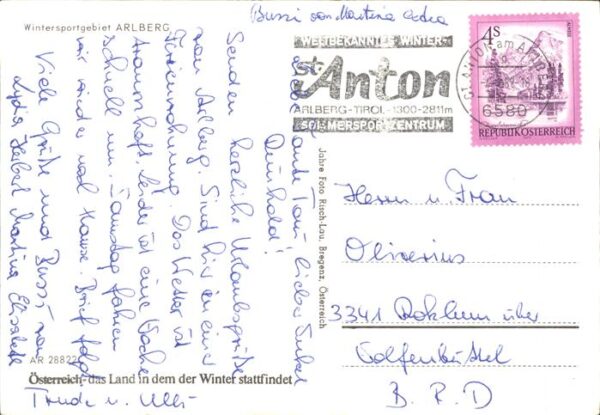 Bussi von Martina
Wintersportgebiet ARLBERG
WELTBEKANNTES WINTER-
St. Anton
ARLBERG-TIROL · 1300-2811m
SOMMERSPORTZENTRUM
ST. ANTON am Arlberg
6580
4S
REPUBLIK ÖSTERREICH
Liebe Tante Toni! Lieber Onkel
Reinhold!
Senden herzliche Urlaubsgrüße
vom Arlberg. Sind hier in einer
Ferienwohnung. Das Wetter ist
traumhaft. Leider ist eine Woche
schnell um. Samstag fahren
wir wieder nach Hause. Brief folgt
Viele Grüße und Bussi von
Lydia Herbert Martina Elisabeth
Trude u. Ulli
Jahre Foto Risch-Lau, Bregenz, Österreich
Herrn u. Frau
3341 über
Wolfenbüttel
B. R. D
AR 28822
Österreich - das Land in dem der Winter stattfindet